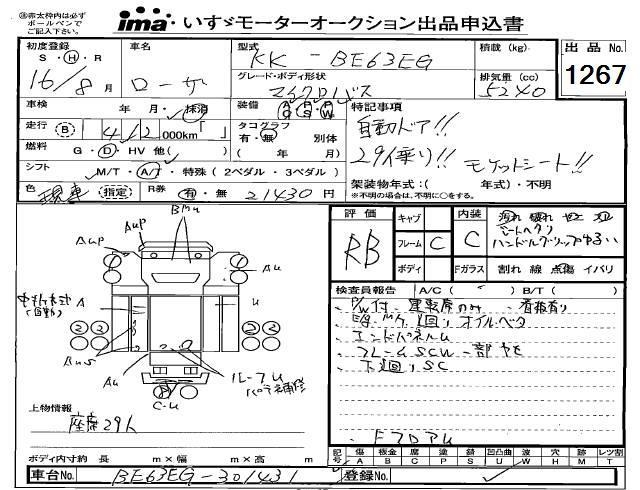 ※赤太枠内は必ず
ボールペンで
ご記入下さい。
ima いすゞモーターオークション出品申込書
初度登録 S・H・R
16/8月
車名
ローザ
型式
KK-BE63EG
積載(kg)
出品No.
1267
グレード・ボディ形状
マイクロバス
排気量(cc)
5240
車検 年 月・抹消
装備
走行 (B) 1412 000km
タコグラフ 有・無 別体
( 年 月)
燃料 G・D・HV 他( )
シフト M/T・A/T・特殊(2ペダル・3ペダル)
色 現車 指定
R券 有・無 21430円
特記事項
自動ドア!!
29人乗り!!
モケットシート!!
架装物年式:( 年式)・不明
※不明の場合は、不明に○をする。
評価
RB
キャブ
フレーム C
ボディ
内装 C
ハンドルグリップ
Fガラス 割れ 線 点傷 イバリ
検査員報告 A/C( ) B/T( )
P/W付 運転席のみ 看板有り
下回り オイルベタ
エンドパネルU
フレームSCW 一部ヤセ
下廻りSC
FフロアU
BMU
AUP
AUP
AU
中折れ式
(自動)
A
U
2 2
2 2
BUS
AU
C-U
ルーフU
上物情報
座席29人
ボディ内寸約 長 m×幅 m×高 m
記号 傷 A 板金 B 腐 C 塗 P 錆 S 凹凸曲 U 波 W 穴 H 無 M レツ割 T
車台No. BE63EG-301431
登録No.